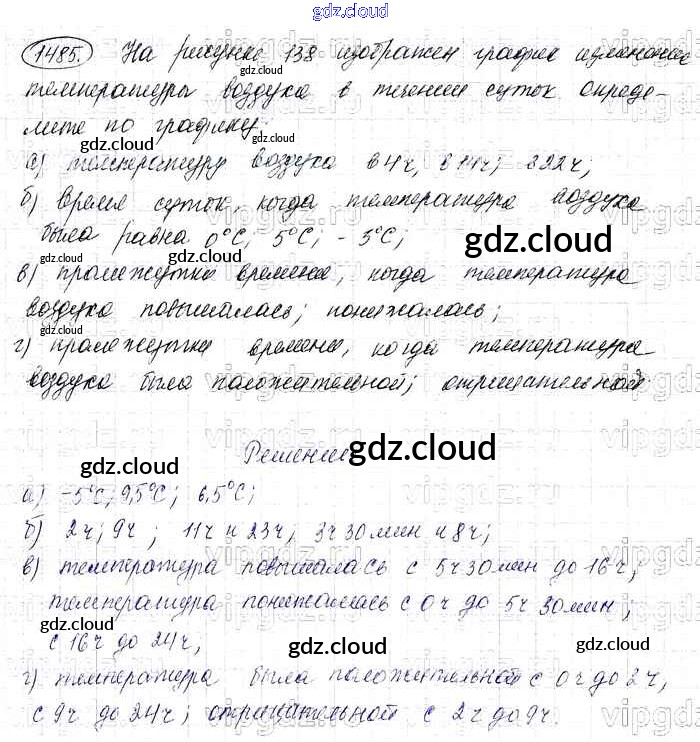 gdz.cloud
1485. На рисунке 138 изображен график изменения
температуры воздуха в течении суток опреде-
лите по графику:
а) температуру воздуха в 4ч, в 14ч; в 22ч;
б) время суток, когда температура воздуха
была равна 0°С; 5°С; -5°С;
в) промежутки времени, когда температура
воздуха повышалась; понижалась;
г) промежутки времени, когда температура
воздуха была положительной; отрицательной
Решение
а) -5°С; 9,5°С; 6,5°С;
б) 2ч; 9ч; 11ч и 23ч; 3ч 30мин и 8ч;
в) температура повышалась с 5ч 30мин до 16ч;
температура понижалась с 0ч до 5ч 30мин;
с 16ч до 24ч;
г) температура была положительной с 0ч до 2ч,
с 9ч до 24ч; отрицательной с 2ч до 9ч.